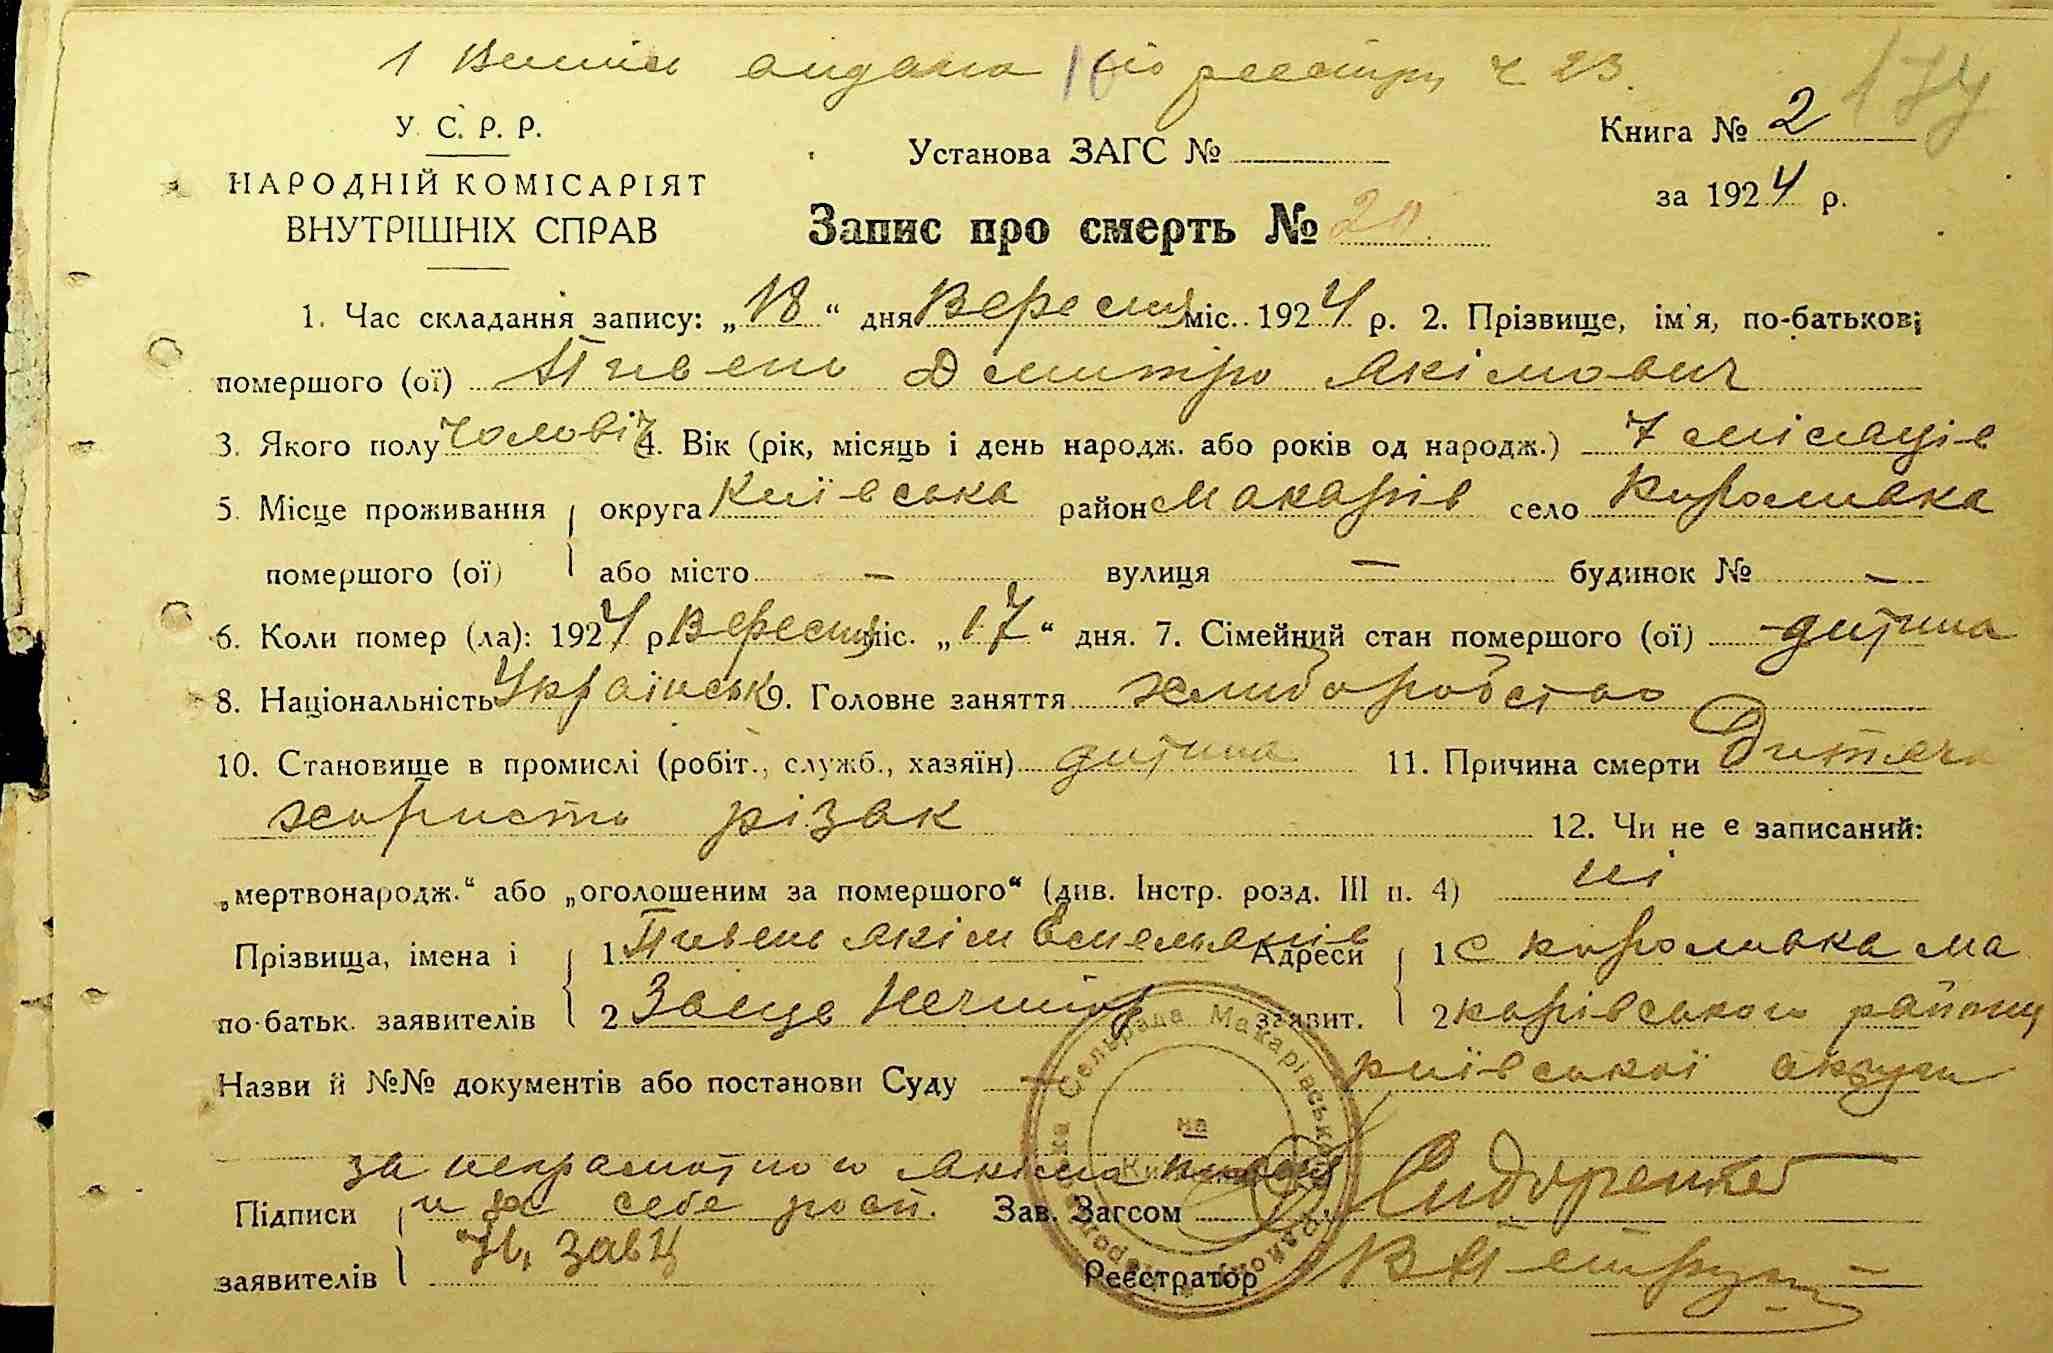 1 Витяг видана по реєстру ч 23.
174
У. С. Р. Р.
НАРОДНІЙ КОМІСАРІЯТ
ВНУТРІШНІХ СПРАВ
Установа ЗАГС №
Книга № 2
за 1924 р.
Запис про смерть № 20
1. Час складання запису: „18“ дня Вересня міс. 1924 р. 2. Прізвище, ім'я, по-батькові
помершого (ої) Пивень Дмитро Якімович
3. Якого полу чоловіч 4. Вік (рік, місяць і день народж. або років од народж.) 7 місяців
5. Місце проживання округа Київська район Макарів село Короливка
помершого (ої) або місто — вулиця — будинок № —
6. Коли помер (ла): 1924 р. Вересня міс. „17“ дня. 7. Сімейний стан помершого (ої) дитина
8. Національність Українськ 9. Головне заняття хлиборобство
10. Становище в промислі (робіт., служб., хазяїн) дитина 11. Причина смерти Дитяча
хориста різак
12. Чи не є записаний:
„мертвонародж.“ або „оголошеним за помершого“ (див. Інстр. розд. III п. 4) ні
Прізвища, імена і 1 Пивень Якім Адреси 1 с Короливка Ма
по-батьк. заявителів 2 Заяць заявит. 2 карівського району
Назви й №№ документів або постанови Суду — Київської округи
за неграмотного Якіма Пивня
Підписи и за себе росп. Зав. Загсом Сидоренко
заявителів Н. Заяц Реєстратор
Сельрада Макарівська